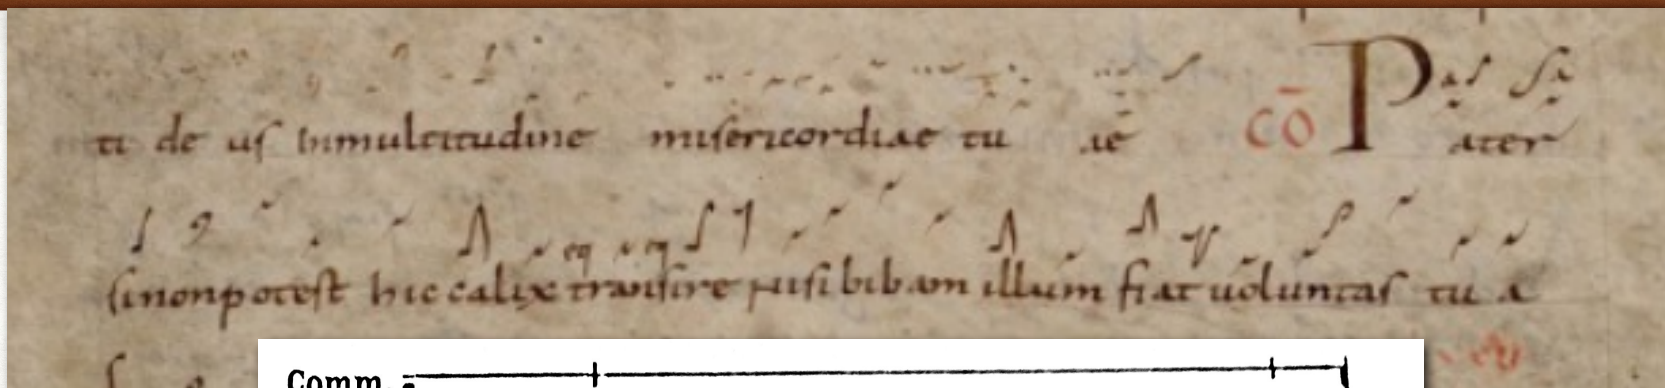 ti de us Inmultitudine misericordiae tu ae cō Pater
sinonpotest hic calix transire nisi bibam illum fiat uoluntas tu a
Comm.